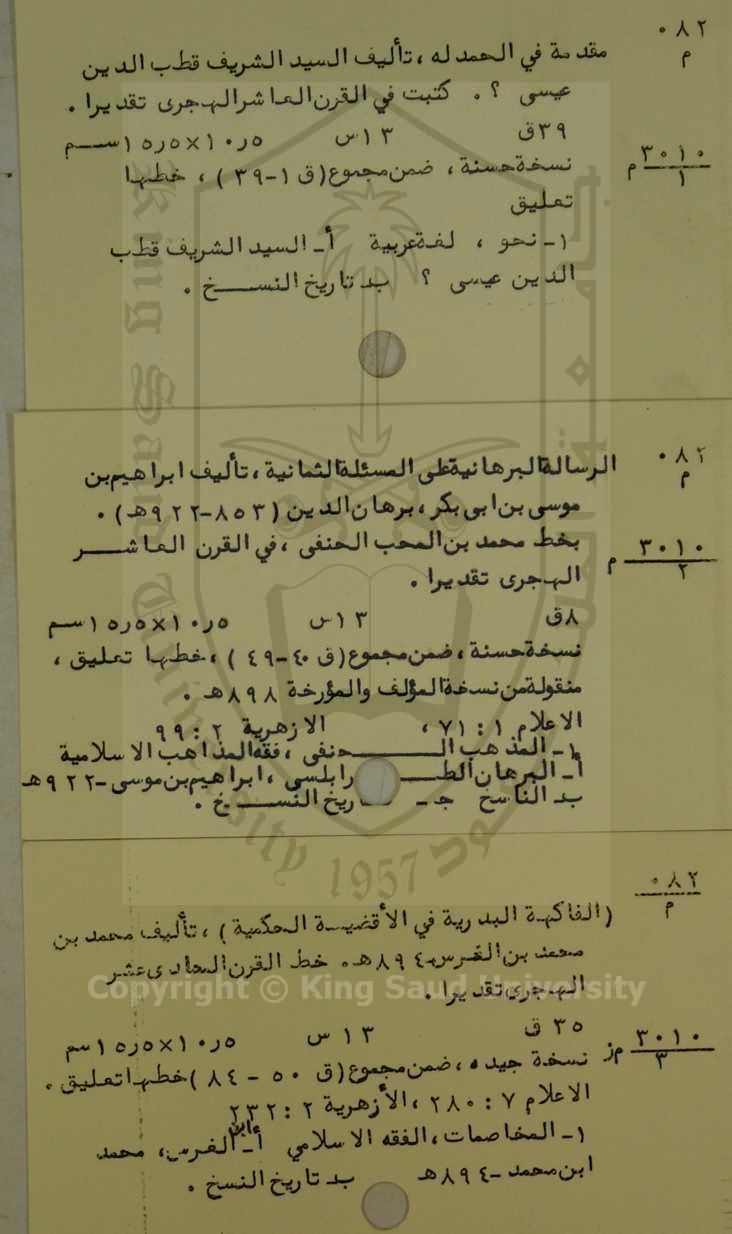 ٠٨٢
م
مقدمة في الحمدله ، تأليف السيد الشريف قطب الدين
عيسى ؟ . كتبت في القرن العاشر الهجرى تقديرا .
٣٩ق ١٣س ١٥٫٥×١٠٫٥سم
٣٠١٠
١ م
نسخة حسنة ، ضمن مجموع (ق ١-٣٩) ، خطها
تعليق
١- نحو ، لغة عربية أ- السيد الشريف قطب
الدين عيسى ؟ ب- تاريخ النسخ .
٠٨٢
م
الرسالة البرهانية على المسئلة الثمانية ، تأليف ابراهيم بن
موسى بن ابى بكر ، برهان الدين (٨٥٣-٩٢٢هـ) .
بخط محمد بن المحب الحنفى ، في القرن العاشر
الهجرى تقديرا .
٣٠١٠
٢ م
٨ق ١٣س ١٥٫٥×١٠٫٥سم
نسخة حسنة ، ضمن مجموع (ق ٤٠-٤٩) ، خطها تعليق ،
منقولة من نسخة المؤلف والمؤرخة ٨٩٨هـ .
الاعلام ١ : ٧١ ، الازهرية ٢ : ٩٩
١- المذهب الحنفى ، فقه المذاهب الاسلامية
أ- البرهان الطرابلسى ، ابراهيم بن موسى -٩٢٢هـ
ب- الناسخ ج- تاريخ النسخ .
٠٨٢
م
(الفاكهة البدرية في الأقضية الحكمية) ، تأليف محمد بن
محمد بن الغرس -٨٩٤هـ . خط القرن الحادى عشر
الهجرى تقديرا .
٣٥ ق ١٣ س ١٥٫٥×١٠٫٥سم
٣٠١٠
٣ مز
نسخة جيده ، ضمن مجموع (ق ٥٠ - ٨٤) خطها تعليق .
الاعلام ٧ : ٢٨٠ ، الأزهرية ٢ : ٢٣٢
١- المخاصمات ، الفقه الاسلامي أ- ابن الغرس ، محمد
ابن محمد -٨٩٤هـ ب- تاريخ النسخ .
King Saud University
1957
Copyright © King Saud University